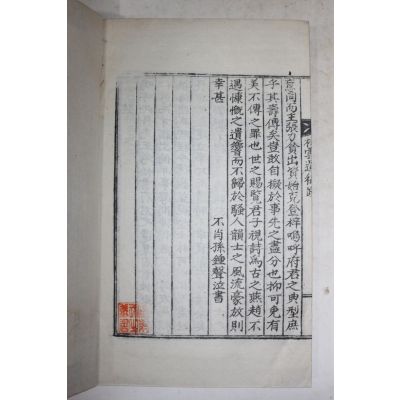 意同而主張力貲出質始克登梓嗚呼府君之典型庶
乎其壽傳矣豈敢自擬於事先之盡分也抑可免有
美不傳之罪也世之賜覽君子視詩爲古之燕趙不
遇慷慨之遺響而不歸於騷人韻士之風流豪放則
幸甚
不肖孫鍾聲泣書